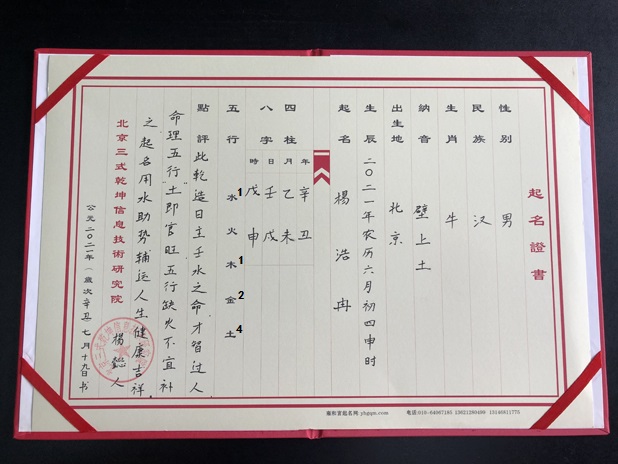 起名證書
性別 男
民族 汉
生肖 牛
納音 壁上土
出生地 北京
生辰 二〇二一年农历六月初四申时
起名 楊浩冉
四柱 年 月 日 時
八字 辛丑 乙未 壬戌 戊申
五行 水1 火 木1 金2 土4
點評 此乾造日主壬水之命才智过人
命理五行"土"即官旺五行缺火不宜补
之起名用水助势辅运人生健康吉祥.
北京三式乾坤信息技術研究院 楊懿人
公元二〇二一年(歲次辛丑七月十九日书
雍和宫起名网:yhgqm.com 电话:010-64087185 13021280498 15146811775